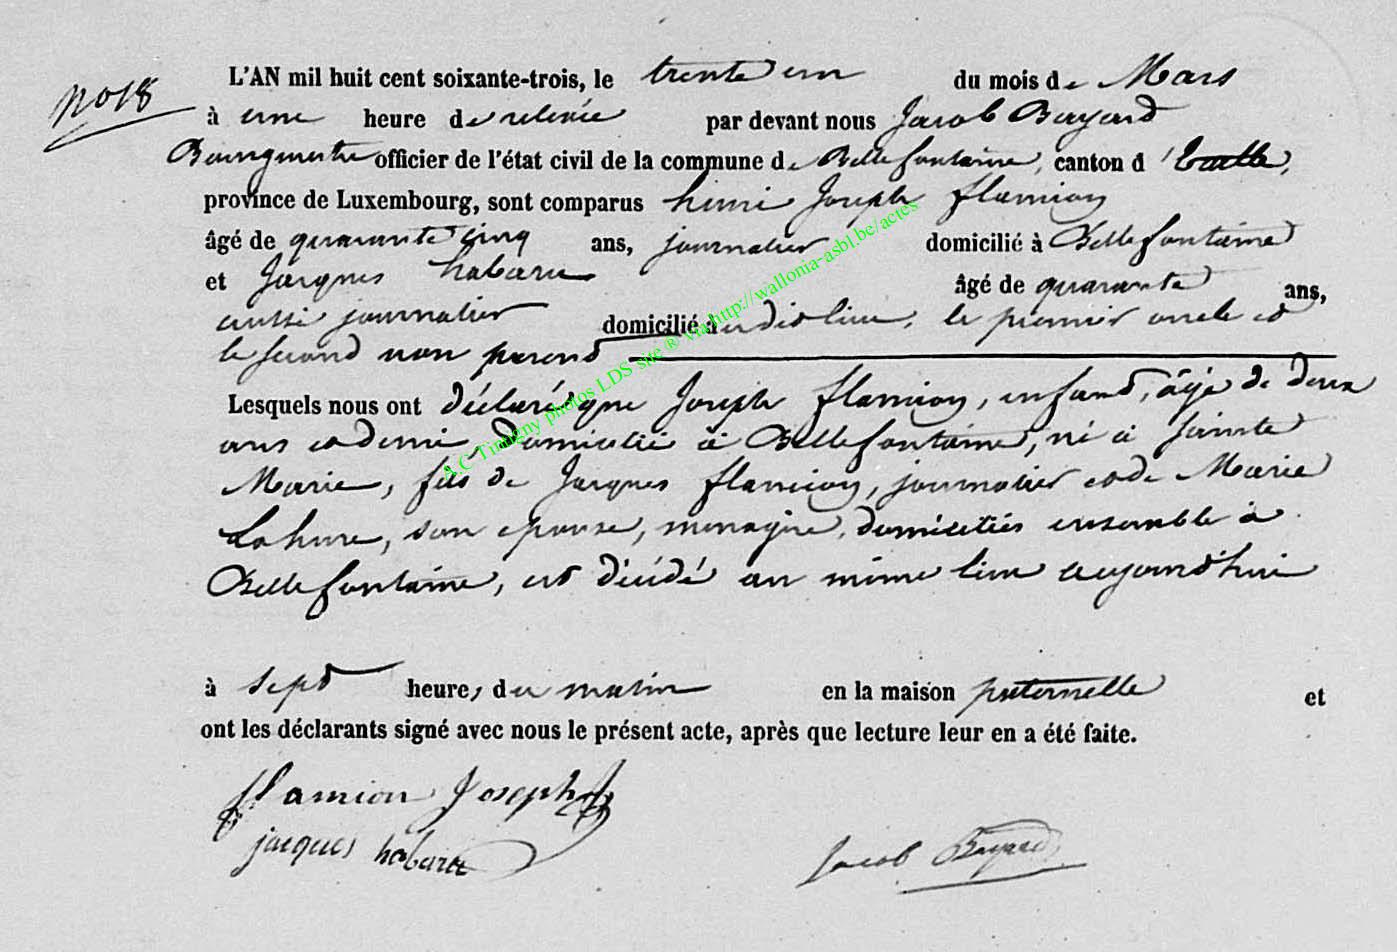 No 18
L'AN mil huit cent soixante-trois, le trente un du mois de Mars
à une heure de relevée par devant nous Jacob Bayard
Bourgmestre officier de l'état civil de la commune de Bellefontaine, canton d'Etalle,
province de Luxembourg, sont comparus henri Joseph flamion
âgé de quarante cinq ans, journalier domicilié à Bellefontaine
et Jacques habaru âgé de quarante ans,
aussi journalier domicilié audit lieu, le premier oncle et
le second non parent
Lesquels nous ont déclaré que Joseph flamion, enfant, âgé de deux
ans et demi, domicilié à Bellefontaine, né à Sainte
Marie, fils de Jacques flamion, journalier et de Marie
Lahure, son epouse, menagère, domiciliés ensemble à
Bellefontaine, est décédé au même lieu aujourd'hui
à sept heures du matin en la maison paternelle et
ont les déclarants signé avec nous le présent acte, après que lecture leur en a été faite.
flamion Joseph
jacques habaru
Jacob Bayard
A.C Tintigny photos LDS site ® via http://wallonia-asbl.be/actes